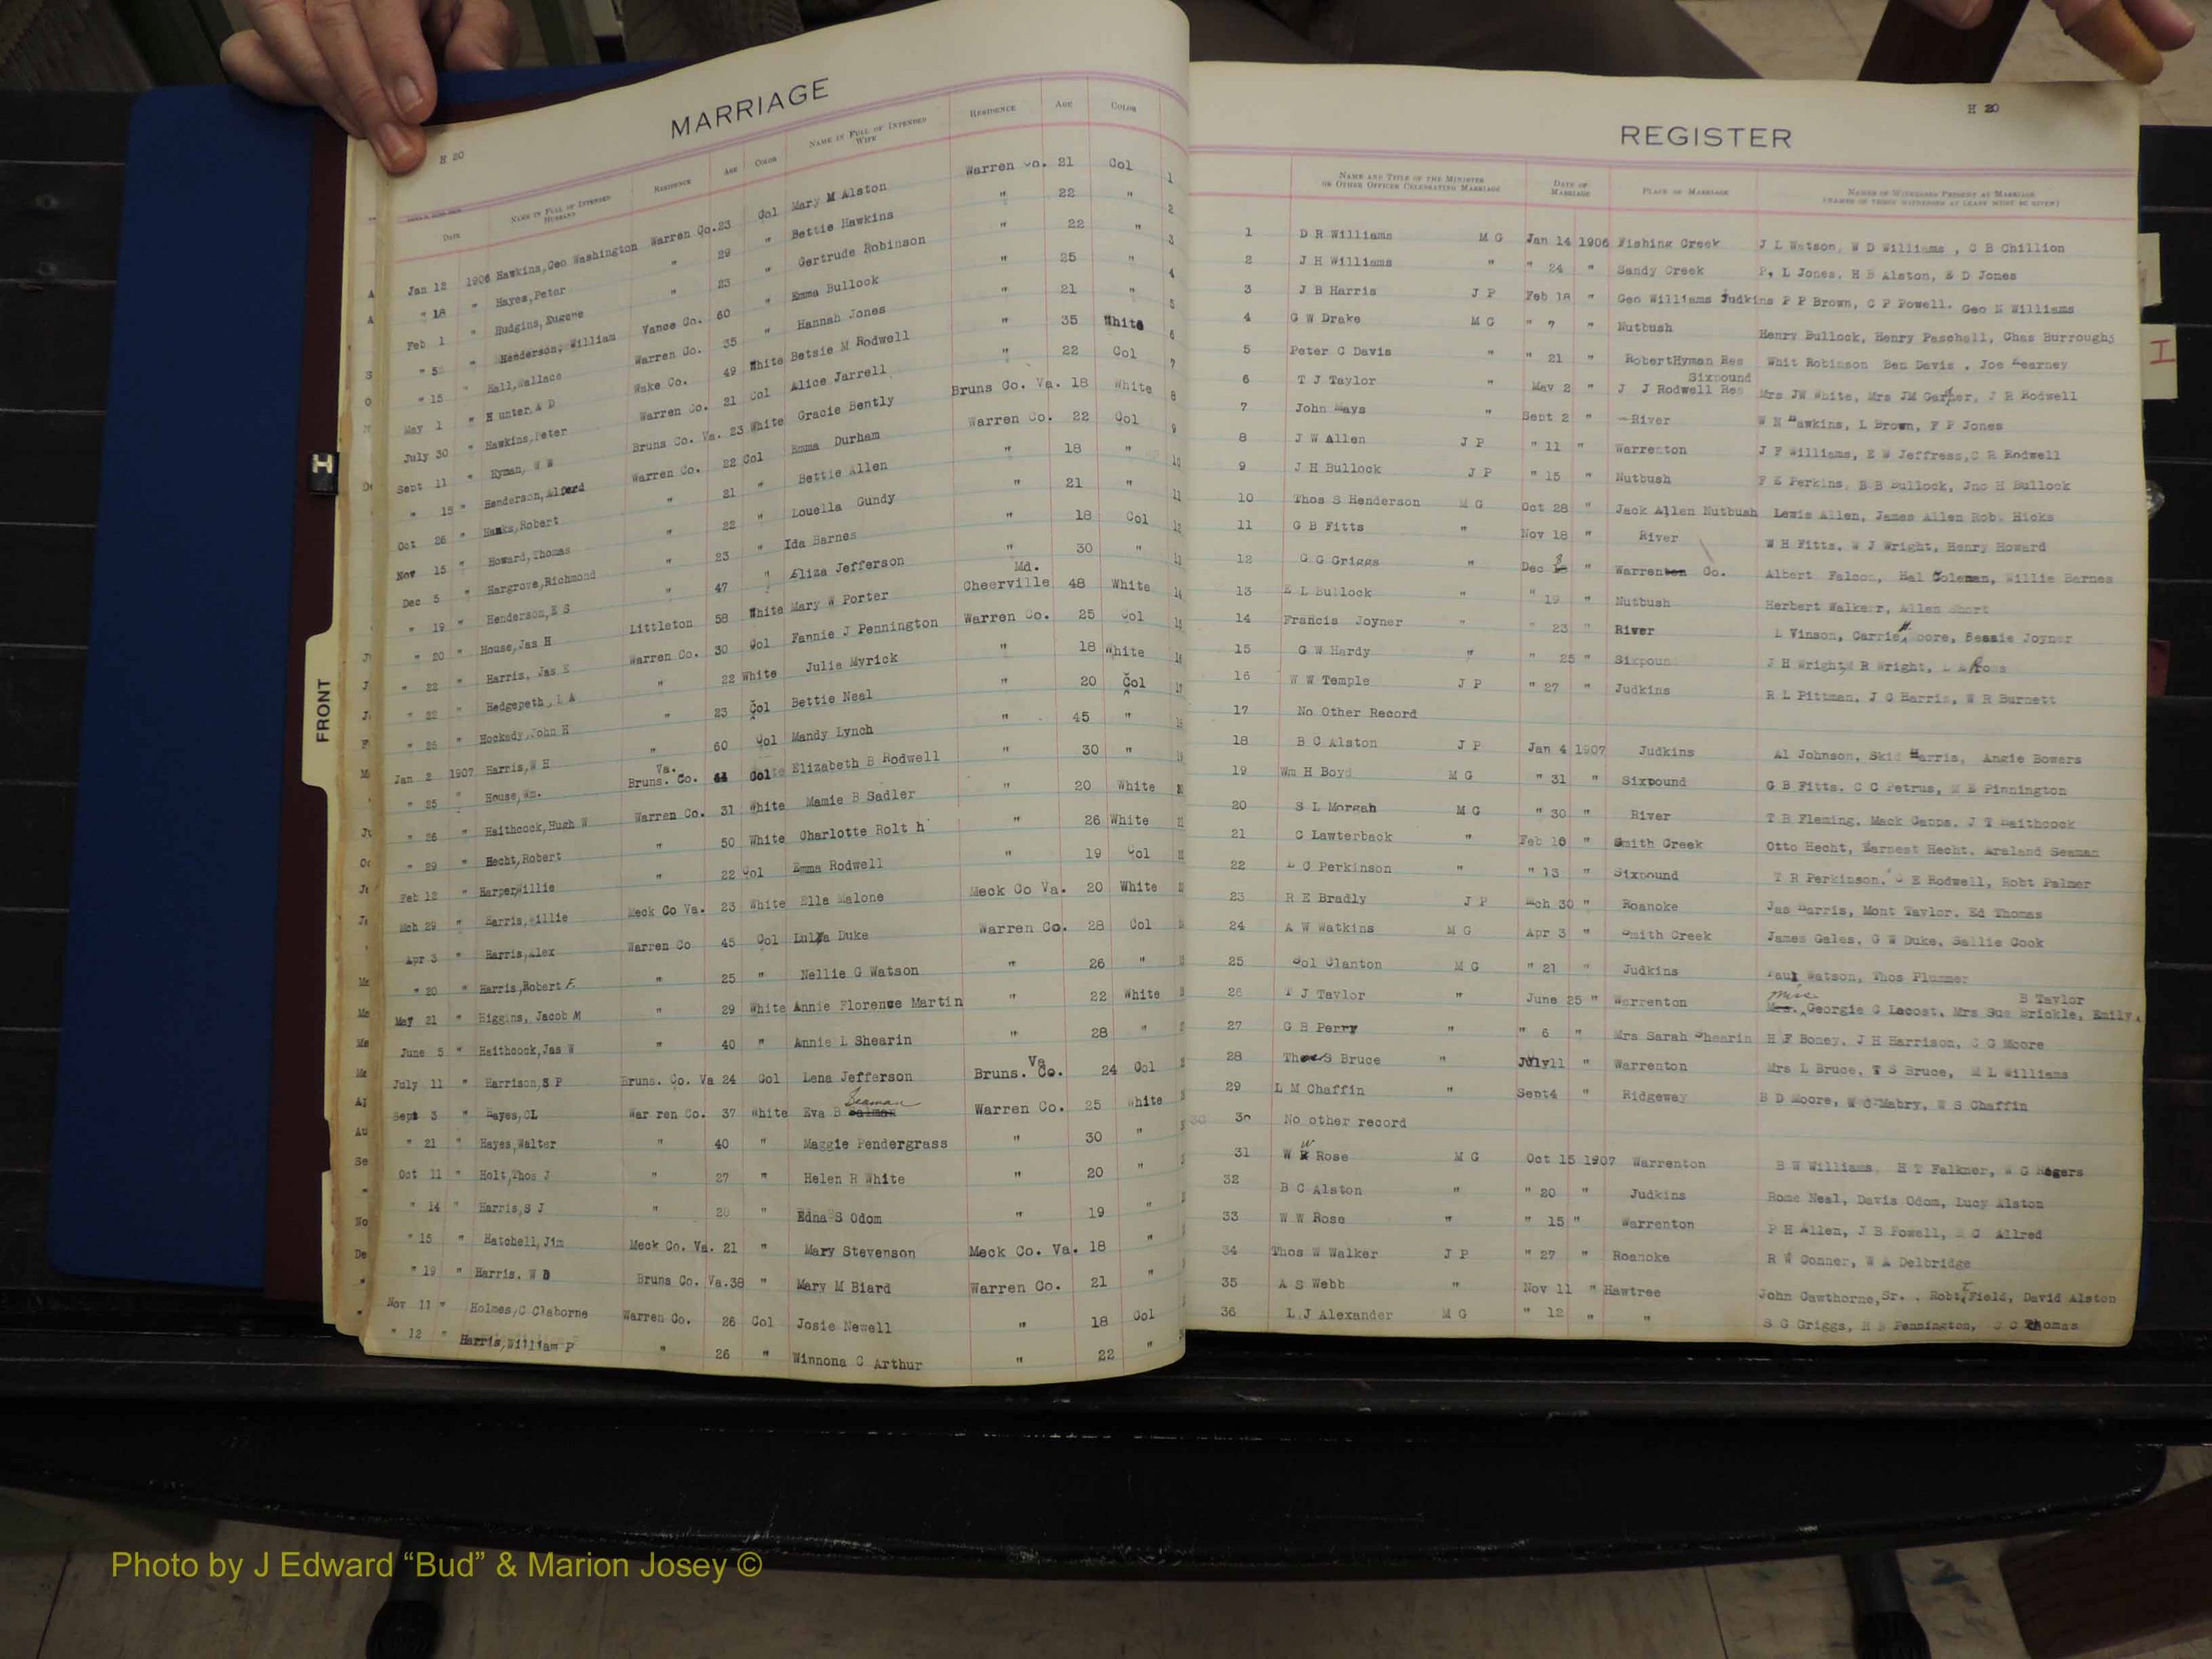 MARRIAGE
H 20
Date
NAME IN FULL OF INTENDED HUSBAND
RESIDENCE
AGE
COLOR
NAME IN FULL OF INTENDED WIFE
RESIDENCE
AGE
COLOR
Jan 12 1906 Hawkins, Geo Washington Warren Co. 23 Col Mary M Alston Warren Co. 21 Col 1
" 18 " Hayes, Peter " 29 " Bettie Hawkins " 22 " 2
Feb 1 " Hudgins, Eugene " 23 " Gertrude Robinson " 22 " 3
" 5 " Henderson, William Vance Co. 60 " Emma Bullock " 25 " 4
" 15 " Hall, Wallace Warren Co. 35 " Hannah Jones " 21 " 5
May 1 " Hunter, A D Wake Co. 49 White Betsie M Rodwell " 35 White 6
July 30 " Hawkins, Peter Warren Co. 21 Col Alice Jarrell " 22 Col 7
Sept 11 " Hyman, W W Bruns Co. Va. 23 White Gracie Bently Bruns Co. Va. 18 White 8
" 15 " Henderson, Alford Warren Co. 22 Col Emma Durham Warren Co. 22 Col 9
Oct 26 " Hanks, Robert " 21 " Bettie Allen " 18 " 10
Nov 15 " Howard, Thomas " 22 " Louella Gundy " 21 " 11
Dec 5 " Hargrove, Richmond " 23 " Ida Barnes " 18 Col 12
" 19 " Henderson, E S " 47 " Eliza Jefferson " 30 " 13
" 20 " House, Jas H Littleton 58 White Mary W Porter Cheerville Md. 48 White 14
" 22 " Harris, Jas E Warren Co. 30 Col Fannie J Pennington Warren Co. 25 Col 15
" 22 " Hedgepeth, L A " 22 White Julia Myrick " 18 White 16
" 26 " Hockady, John H " 23 Col Bettie Neal " 20 Col 17
Jan 2 1907 Harris, W H " 60 Col Mandy Lynch " 45 "
" 25 " House, Wm. Bruns. Co. Va. 44 Col Elizabeth B Rodwell " 30 "
" 26 " Haithcock, Hugh W Warren Co. 31 White Mamie B Sadler " 20 White
" 29 " Hecht, Robert " 50 White Charlotte Rolt h " 26 White
Feb 12 " Harper, Willie " 22 Col Emma Rodwell " 19 Col
Mch 29 " Harris, Willie Meck Co Va. 23 White Ella Malone Meck Co Va. 20 White
Apr 3 " Harris, Alex Warren Co 45 Col Lula Duke Warren Co. 28 Col
" 20 " Harris, Robert F. " 25 " Nellie G Watson " 26 "
May 21 " Higgins, Jacob M " 29 White Annie Florence Martin " 22 White
June 5 " Haithcock, Jas W " 40 " Annie L Shearin " 28 "
July 11 " Harrison, S P Bruns. Co. Va 24 Col Lena Jefferson Bruns. Co. Va 24 Col
Sept 3 " Hayes, CL War ren Co. 37 White Eva B Seaman Warren Co. 25 White
" 21 " Hayes, Walter " 40 " Maggie Pendergrass " 30 "
Oct 11 " Holt, Thos J " 27 " Helen R White " 20 "
" 14 " Harris, S J " 20 " Edna S Odom " 19 "
" 15 " Hatchell, Jim Meck Co. Va. 21 " Mary Stevenson Meck Co. Va. 18 "
" 19 " Harris, W D Bruns Co. Va. 38 " Mary M Biard Warren Co. 21 "
Nov 11 " Holmes, C Claborne Warren Co. 26 Col Josie Newell " 18 Col
" 12 " Harris, William P " 26 " Winnona C Arthur " 22 "
H
FRONT
REGISTER
H 20
NAME AND TITLE OF THE MINISTER OR OTHER OFFICER CELEBRATING MARRIAGE
DATE OF MARRIAGE
PLACE OF MARRIAGE
NAMES OF WITNESSES PRESENT AT MARRIAGE
(NAMES OF THREE WITNESSES AT LEAST MUST BE GIVEN)
1 D R Williams M G Jan 14 1906 Fishing Creek J L Watson, W D Williams, C B Chillion
2 J H Williams " " 24 " Sandy Creek P. L Jones, H B Alston, E D Jones
3 J B Harris J P Feb 18 " Geo Williams Judkins P P Brown, C P Powell. Geo N Williams
4 G W Drake M G " 7 " Nutbush Henry Bullock, Henry Paschall, Chas Burroughs
5 Peter C Davis " " 21 " RobertHyman Res Sixpound Whit Robinson Ben Davis, Joe Kearney
6 T J Taylor " May 2 " J J Rodwell Res Mrs JW White, Mrs JM Garner, J R Rodwell
7 John Mays " Sept 2 " River W N Hawkins, L Brown, F P Jones
8 J W Allen J P " 11 " Warrenton J F Williams, E W Jeffress, C R Rodwell
9 J H Bullock J P " 15 " Nutbush F E Perkins, B B Bullock, Jno H Bullock
10 Thos S Henderson M G Oct 28 " Jack Allen Nutbush Lewis Allen, James Allen Rob. Hicks
11 G B Fitts " Nov 18 " River W H Fitts, W J Wright, Henry Howard
12 G G Griggs " Dec 8 " Warrenton Co. Albert Falcon, Hal Coleman, Willie Barnes
13 E L Bullock " " 19 " Nutbush Herbert Walkerr, Allen Short
14 Francis Joyner " " 23 " River L Vinson, Carrie Moore, Bessie Joyner
15 G W Hardy " " 25 " Sixpoun J H Wright, R Wright,
16 W W Temple J P " 27 " Judkins R L Pittman, J G Harris, W R Burnett
17 No Other Record
18 B C Alston J P Jan 4 1907 Judkins Al Johnson, Skid Harris, Angie Bowers
19 Wm H Boyd M G " 31 " Sixpound G B Fitts. C C Petrus, M E Pinnington
20 S L Morgan M G " 30 " River T B Fleming, Mack Capps. J T Haithcock
21 C Lawterback " Feb 10 " Smith Creek Otto Hecht, Earnest Hecht. Araland Seaman
22 L C Perkinson " " 13 " Sixpound T R Perkinson, E Rodwell, Robt Palmer
23 R E Bradly J P Mch 30 " Roanoke Jas Harris, Mont Taylor. Ed Thomas
24 A W Watkins M G Apr 3 " Smith Creek James Gales, G W Duke, Sallie Cook
25 Col Clanton M G " 21 " Judkins Paul Watson, Thos Plummer
26 T J Taylor " June 25 " Warrenton Miss Georgie C Lacost. Mrs Sue Brickle, Emily B Taylor
27 G B Perry " " 6 " Mrs Sarah Shearin H F Boney. J H Harrison, C G Moore
28 Thos S Bruce " July11 " Warrenton Mrs L Bruce, T S Bruce, M L Williams
29 L M Chaffin " Sept4 " Ridgeway B D Moore, W G Mabry, W S Chaffin
30 No other record
31 W W Rose M G Oct 15 1907 Warrenton B W Williams, H T Falkner, W G Rogers
32 B C Alston " " 20 " Judkins Rome Neal, Davis Odom, Lucy Alston
33 W W Rose " " 15 " Warrenton P H Allen, J B Powell, M C Allred
34 Thos W Walker J P " 27 " Roanoke R W Conner, W A Delbridge
35 A S Webb " Nov 11 " Hawtree John Cawthorne, Sr. . Robt T Field, David Alston
36 L J Alexander M G " 12 " " S G Griggs, H B Pennington, J C Thomas
I
Photo by J Edward “Bud” & Marion Josey ©